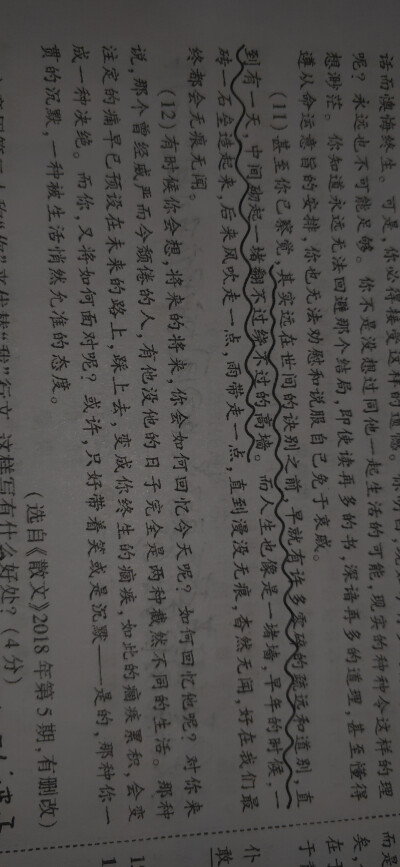 话而懊悔终生。可是，你必得接受这样的道
呢？永远也不可能足够。你不是没想过同他一起生活的可能，现实的种种令这样的理
想渺茫。你知道永远无法回避那个结局，即使读再多的书，深谙再多的道理，甚至懂得
遵从命运意旨的安排，你也无法劝慰和说服自己免于哀戚。
(11)甚至你已察觉，其实远在世间的诀别之前，早就有许多零碎的疏远和道别，直
到有一天，中间砌起一堵翻不过绕不过的高墙。而人生也像是一堵墙，早年的时候，一
砖一石垒造起来，后来风吹走一点，雨带走一点，直到漫没无痕，杳然无闻，好在我们最
终都会无痕无闻。
(12)有时候你会想，将来的将来，你会如何回忆今天呢？如何回忆他呢？对你来
说，那个曾经威严而今颓倦的人，有他没他的日子完全是两种截然不同的生活。那种
注定的痛早已预设在未来的路上，踩上去，变成你终生的痼疾，如此的痼疾累积，会变
成一种决绝。而你，又将如何面对呢？或许，只好带着笑或是沉默——是的，那种你一
贯的沉默，一种被生活悄然允准的态度。
(选自《散文》2018年第5期，有删改)
第二人称“你”来代替“我”行文，这样写有什么好处？(4分)
而是
矣，
仆
敢